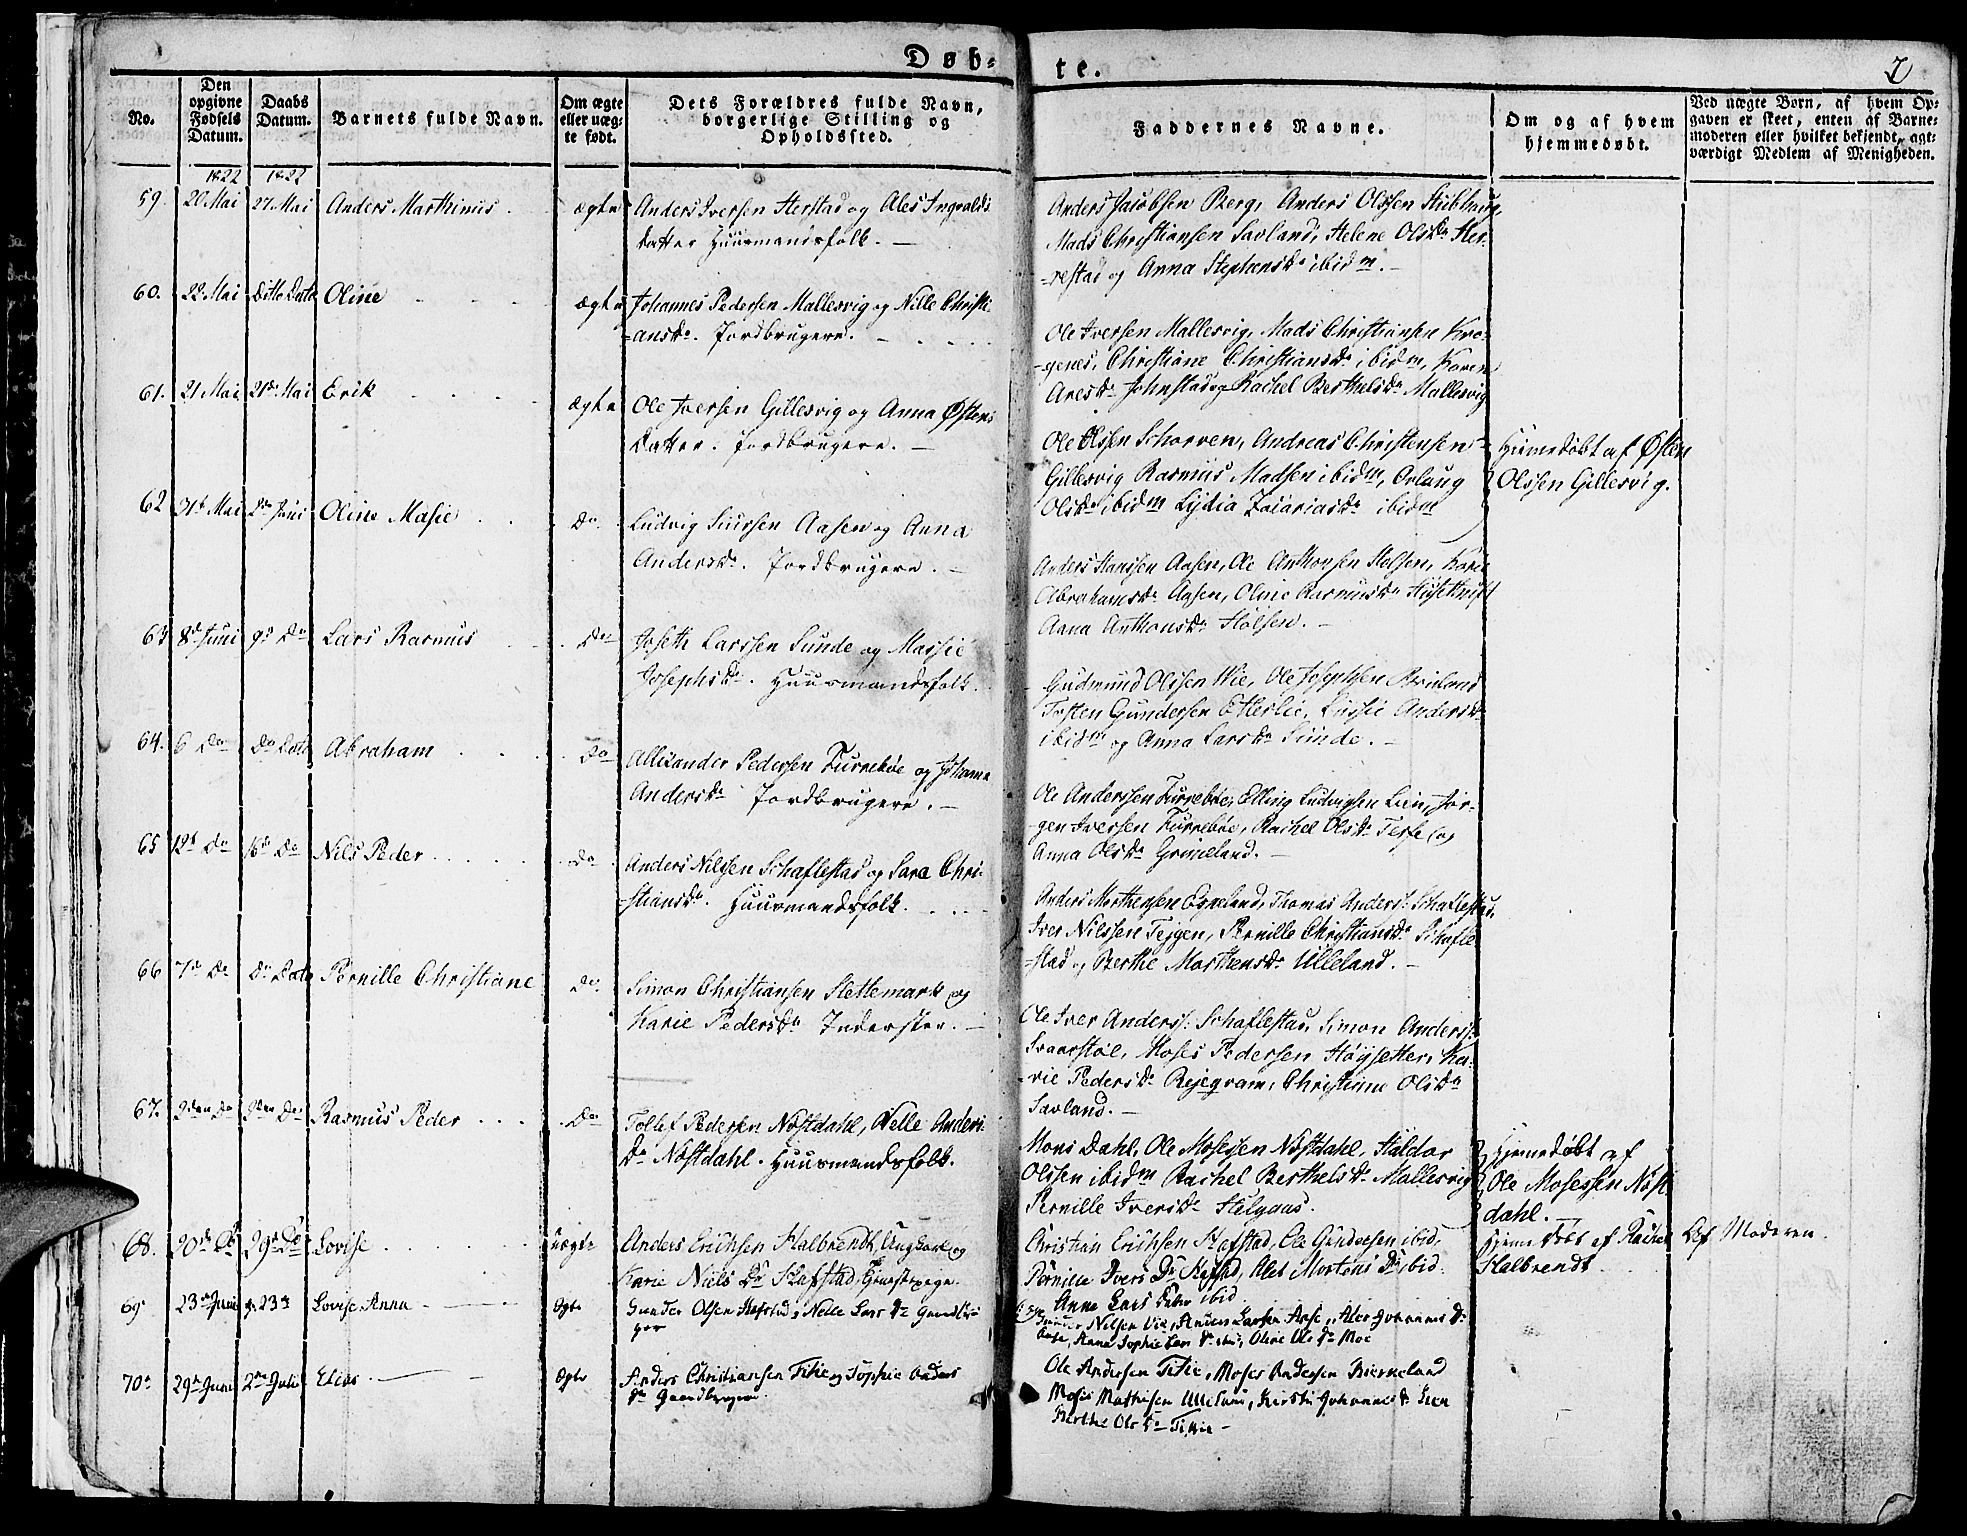 Døb-
te.
7
No.
Den opgivne Fødsels Datum.
Daabs Datum.
Barnets fulde Navn.
Om ægte eller uægte født.
Dets Forældres fulde Navn, borgerlige Stilling og Opholdssted.
Faddernes Navne.
Om og af hvem hjemmedøbt.
Ved uægte Børn, af hvem Op-
gaven er skeet, enten af Barne-
moderen eller hvilket bekjendt, agt-
værdigt Medlem af Menigheden.
1822 1822
59. 20 Mai 27. Mai Anders Marthinus ægte Anders Iversen Herstad og Ales Ingvalds
datter Huusmandsfolk.
Anders Jacobsen Berg, Anders Olssen
Mads Christiansen Savland, Helene Olsdr Her-
-restad og Anna Stephensdr ibidm.
60. 22. Mai Ditto Dato Oline ægte Johannes Pedersen Mallesvig og Nille Christi-
-ansdr. Jordbrugere.
Ole Iversen Mallesvig, Mads Christiansen Kro-
-genes, Christiane Christiansdr ibidm, Karen
Aresdr Johnstad og Rachel Berthelsdr Mallesvig
61. 21 Mai Mai Erik ægte Ole Iversen Gillesvig og Anna Østens
datter. Jordbrugere.
Ole Olssen Schorven, Andreas Christensen
Gillesvig Rasmus Madsen ibidm,
Olsdr ibidm Lydia Zaiariasdr ibidm
Hiemedøbt af Østen
Olssen Gillesvig.
62 31t Mai Juni Oline Masie Do. Ludvig Siurssen Aasen og Anna
Andersdr. Jordbrugere.
Anders Hanssen Aasen, Ole Anthonsen Stølsen, Karie
Abrahamsdr Aasen, Oline Rasmusdr
Anna Anthonsdr Stølsen.
63 8d Juni 9d Do Lars Rasmus Do Joseth Larssen Sunde og Massie
Josephsdr. Huusmandsfolk.
Gudmund Olssen Wie, Ole Josephsen
Tosten Gundersen Etterlie, Lussie Andersdr
ibidm og Anna Larsdr Sunde.
64. 6 Do Do Dato Abraham Do Allexander Pedersen Furrebøe og Johanna
Andersdr Jordbrugere.
Ole Anderssen Furrebøe, Elling Ludvigsen Lien, Jør-
-gen Iverssen Furrebøe, Rachel Olsdr og
Anna Olsdr Grimeland.
65 12t Do 16d Do Nils Peder Do Anders Nilssen Schaflestad og Sara Chri-
-stiansdr. Huusmandsfolk.
Anders Morthensen Espeland, Thomas Anderss: Schaflestad,
Iver Nilssen Teigen, Pernille Christiansdr Schafle
-stad og Berthe Morthensdr Ulleland.
66 7d Do Do Dato Pernille Christiane Do. Simon Christiansen Slettemark og
Karie Pedersdr Inderster.
Ole Iver Anderss: Schaflestad, Simon Anderss:
Svaarstøl, Moses Pedersen Høysetter, Ka-
-rie Pedersdr Rejeqvam, Christine Olsdr
Savland.
67. 2den Do 2den Do Rasmus Peder Do Tollef Pedersen Næstdahl, Nelle Anders
dr Næstdahl. Huusmandsfolk.
Mons Dahl, Ole Mosessen Næstdahl, Haldor
Olssen ibidm Rachel Berthelsdr Mallesvig
Pernille Iversdr Helgaas.
Hjemedøbt af
Ole Mosessen Næst
dahl.
68. 20d Do 29d Do Lovise uægte Anders Erichsen Halbrendt, Ungkarl og
Karie Niels Dr Hafstad,
Christian Erichsen Hafstad, Ole Gundersen ibid,
Pernille Ivers Dr Hafstad, Alet Mortens Dr ibid.
Anne Lars Datter ibid
Hjemedøbt af Rachel
Halbrendt
Af Moderen.
69 23 Juni 23 Lovise Anna Ægte Gunder Olsen Hafstad, Nelle Lars Dr
Nilsen Vie, Anders Larsen Aase, Ales Johannes Dr
Aase, Anna Sophie Lars Dr ibid, Oline Ols Dr Moe
70 29 Juni Juli Elias Ægte Anders Christiansen Titie og Sophie Anders
dr Gaardbruger.
Ole Andersen Titie, Moses Andersen Bierkeland
Moses Mathisen Ulleland, Kirsti Johannes dr
Berthe Ols Dr Titie